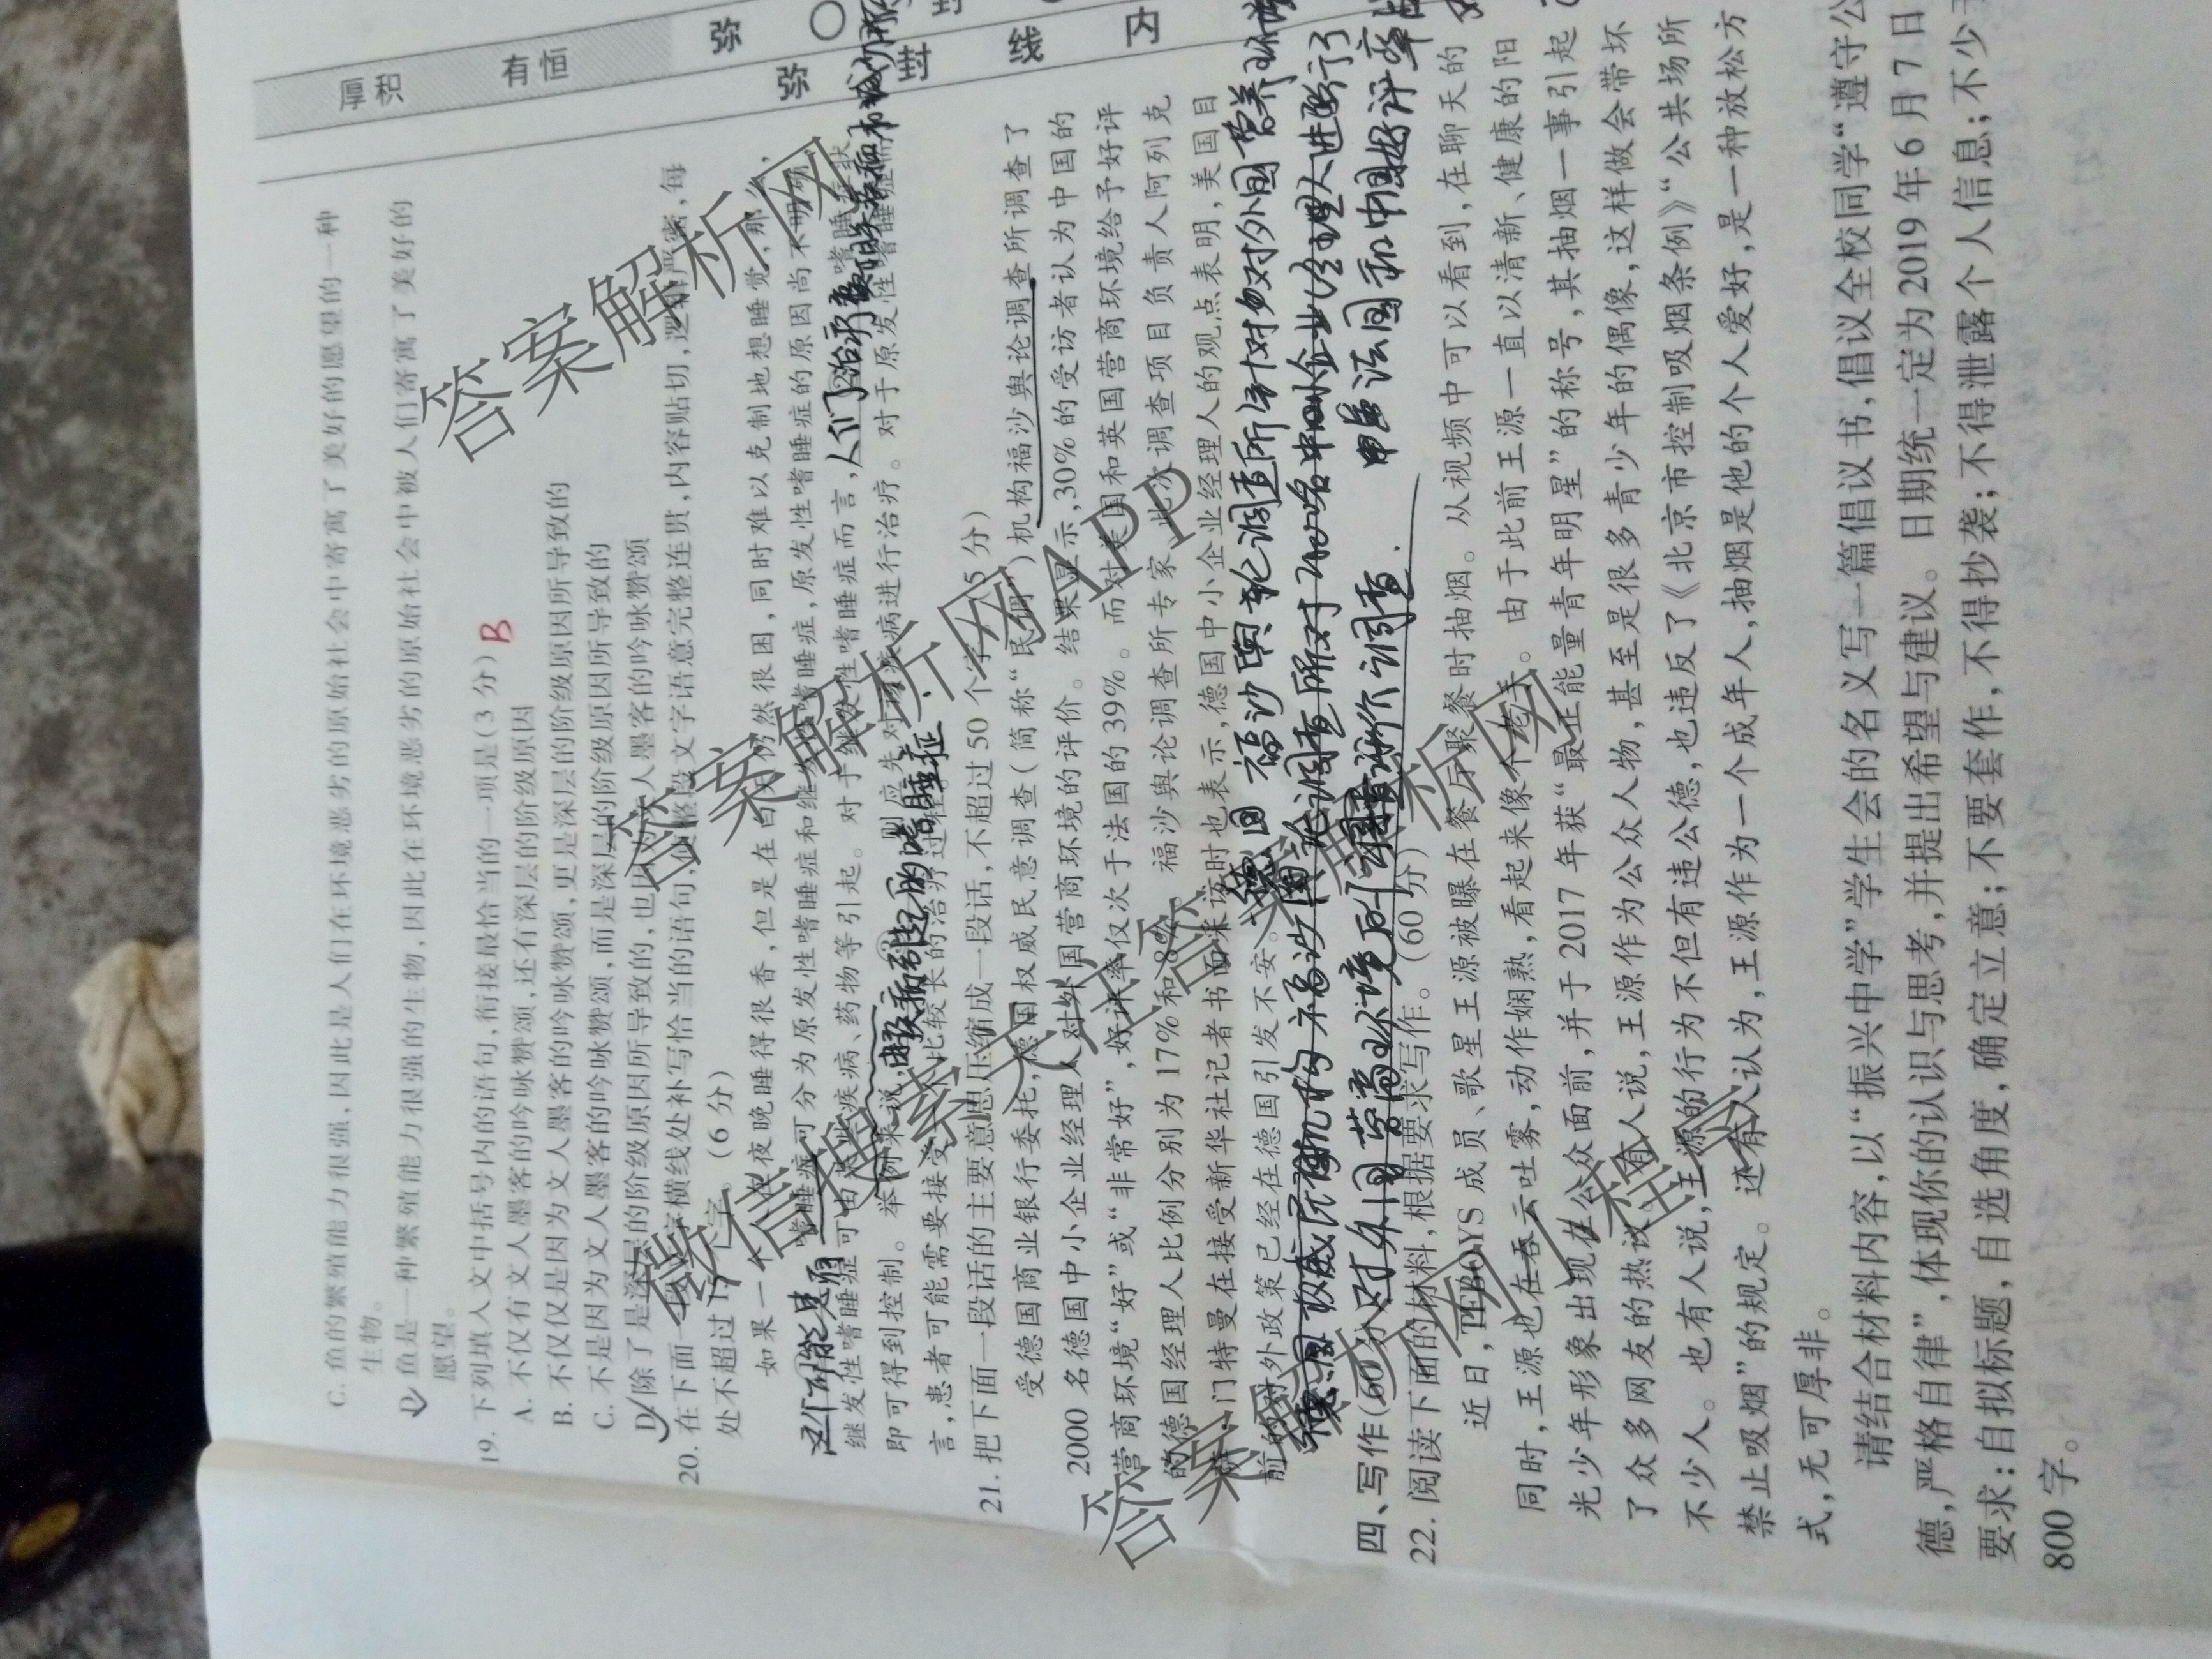 厚积
有恒
C. 鱼的繁殖能力很强,因此是人们在环境恶劣的原始社会中寄寓了美好的愿望的一种
生物。
D 鱼是一种繁殖能力很强的生物,因此在环境恶劣的原始社会中被人们寄寓了美好的
愿望。
19. 下列填入文中括号内的语句,衔接最恰当的一项是(3 分) B
A. 不仅有文人墨客的吟咏赞颂,还有深层的阶级原因
B. 不仅仅是因为文人墨客的吟咏赞颂,更是深层的阶级原因所导致的
C. 不是因为文人墨客的吟咏赞颂,而是深层的阶级原因所导致的
D 除了是深层的阶级原因所导致的,也因为文人墨客的吟咏赞颂
20. 在下面一段文字横线处补写恰当的语句,使整段文字语意完整连贯,内容贴切,逻辑严密,每
处不超过 15 个字。(6 分)
如果一个人在夜晚睡得很香,但是在白天仍然很困,同时难以克制地想睡觉,那么,
这个可能是患有嗜睡症可分为原发性嗜睡症和继发性嗜睡症,原发性嗜睡症的原因尚不明确,
继发性嗜睡症可由某些疾病、药物等引起。对于继发性嗜睡症而言,人们了治疗
即可得到控制。举例来说,由疾病引起的嗜睡症,则应先对该疾病进行治疗。对于原发性嗜睡症
言,患者可能需要接受比较长的治疗过程
21. 把下面一段话的主要意思压缩成一段话,不超过 50 个字。(5 分)
受德国商业银行委托,德国权威民意调查(简称“民调”)机构福沙舆论调查所调查了
2000 名德国中小企业经理人对外国营商环境的评价。结果显示,30%的受访者认为中国的
营商环境“好”或“非常好”,好评率仅次于法国的 39%。而对美国和英国营商环境给予好评
的德国经理人比例分别为 17%和 8%。福沙舆论调查所专家、此次调查项目负责人阿列克
门特曼在接受新华社记者书面采访时也表示,德国中小企业经理人的观点表明,美国目
前的对外政策已经在德国引发不安。
德国福沙舆论调查所针对外国营商环境
四、写作(60 分)
22. 阅读下面的材料,根据要求写作。(60 分)
近日,TFBOYS 成员、歌星王源被曝在餐厅聚餐时抽烟。从视频中可以看到,在聊天的
同时,王源也在吞云吐雾,动作娴熟,看起来像个老手。由于此前王源一直以清新、健康的阳
光少年形象出现在公众面前,并于 2017 年获“最正能量青年明星”的称号,其抽烟一事引起
了众多网友的热议。有人说,王源作为公众人物,甚至是很多青少年的偶像,这样做会带坏
不少人。也有人说,王源的行为不但有违公德,也违反了《北京市控制吸烟条例》“公共场所
禁止吸烟”的规定。还有人认为,王源作为一个成年人,抽烟是他的个人爱好,是一种放松方
式,无可厚非。
请结合材料内容,以“振兴中学”学生会的名义写一篇倡议书,倡议全校同学“遵守公
德,严格自律”,体现你的认识与思考,并提出希望与建议。日期统一定为 2019 年 6 月 7 日
要求:自拟标题,自选角度,确定立意;不要套作,不得抄袭;不得泄露个人信息;不少
800 字。
答案解析网
答案解析网APP